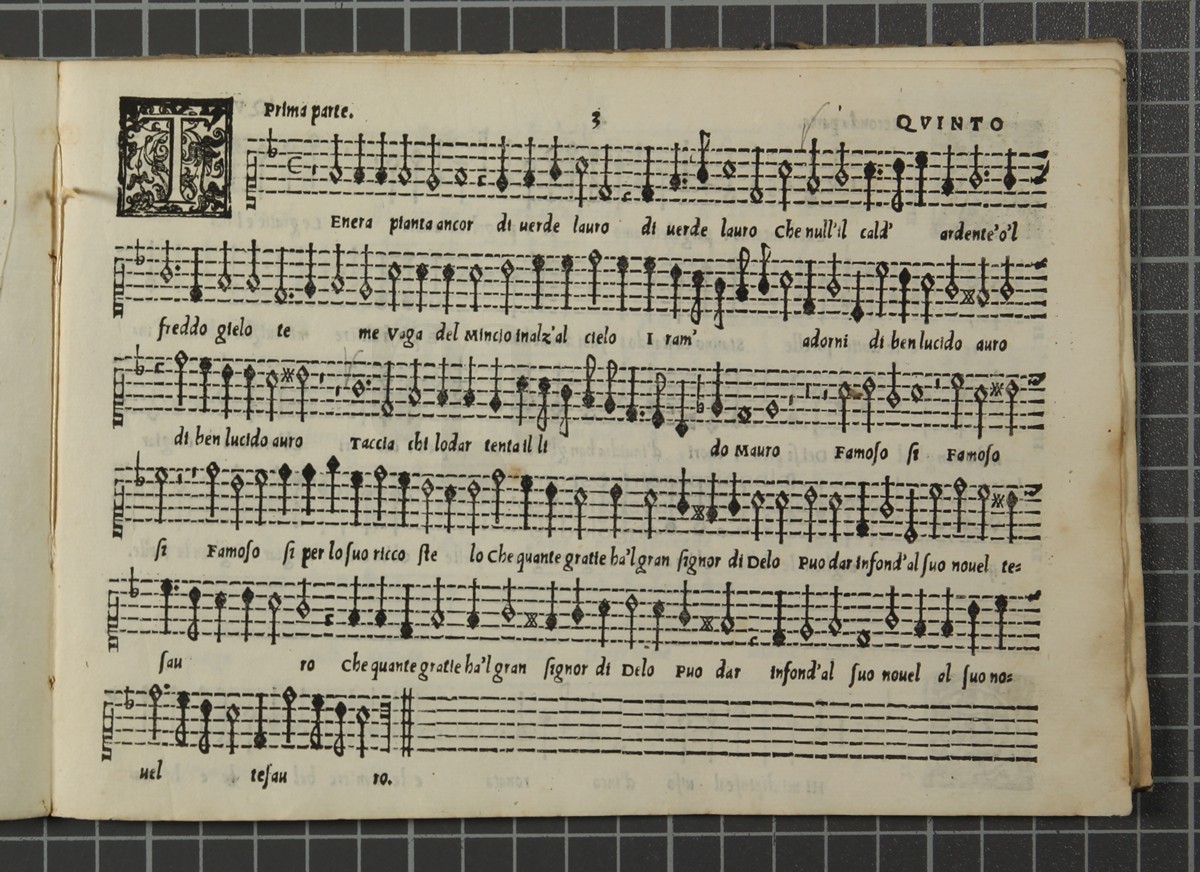 Prima parte.
3
QVINTO
T
Enera pianta ancor di uerde lauro di uerde lauro Che null'il cald' ardente'o'l
freddo gielo te me Vaga del Mincio inalz'al cielo I ram' adorni di ben lucido auro
di ben lucido auro Taccia chi lodar tenta il li do Mauro Famoso sì Famoso
sì Famoso sì per lo suo ricco ste lo Che quante gratie ha'l gran signor di Delo Può dar infond'al suo nouel te=
sau ro Che quante gratie ha'l gran signor di Delo Può dar infond'al suo nouel al suo no=
uel tesau ro.